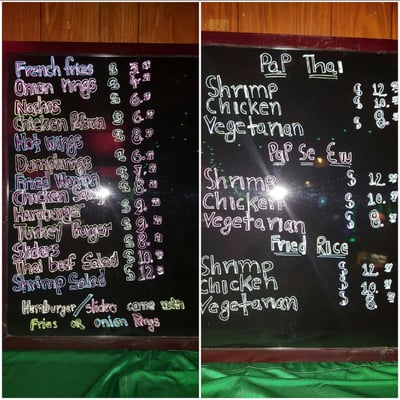 French fries $ 3.99
Onion rings $ 4.99
Nachos $ 6.
Chicken $ 6.
Hot wings $ 6.
Dumplings $ 7.
Fried Wonton $ 8.
Chicken $ 8.
Hamburger $ 9.
Turkey Burger $ 9.
Sliders $ 9.
Thai beef Salad $ 10.
Shrimp Salad $ 12.
Hamburger/sliders come with
Fries OR onion Rings
PaP Thai
Shrimp $ 12.
Chicken $ 10.
Vegetarian $ 8.
PaP Se Ew
Shrimp $ 12.
Chicken $ 10.
Vegetarian $ 8.
Fried Rice
Shrimp $ 12.
Chicken $ 10.
Vegetarian $ 8.